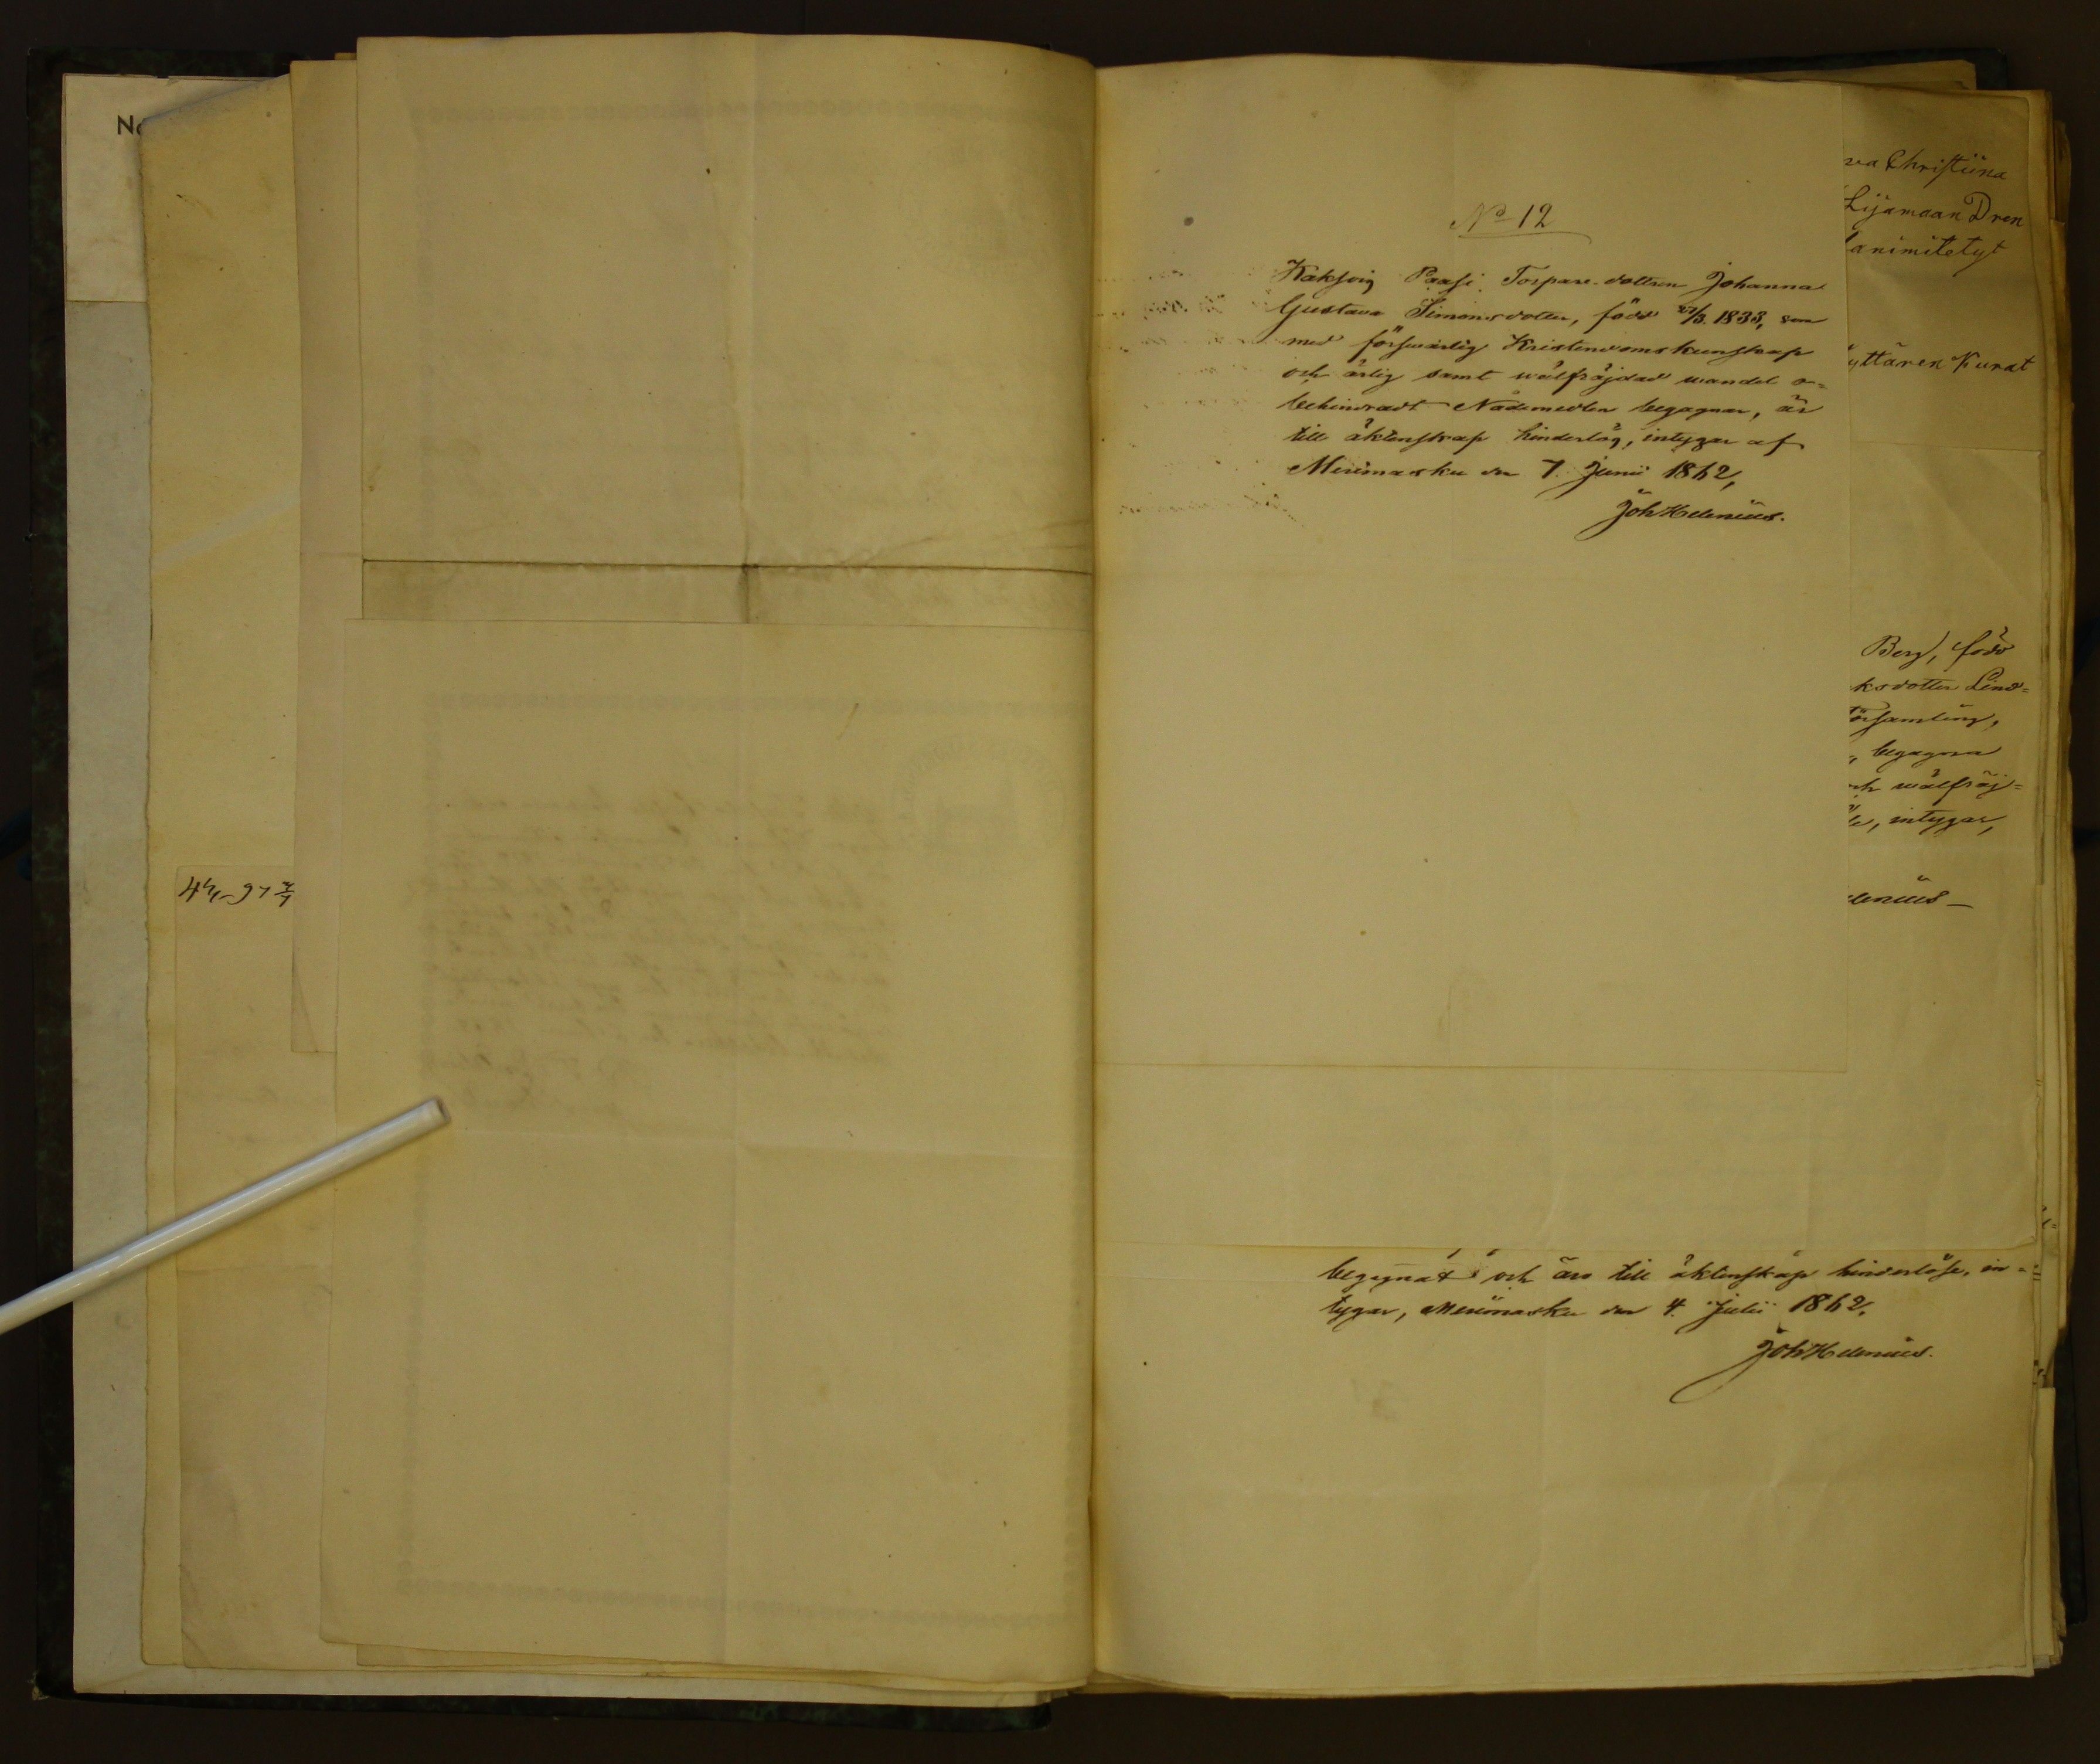 No
No 12
Torpare-dottren Johanna
Gustava Simonsdotter, född 27/3. 1833, som
med försvarlig Kristendomskunskap
och ärlig samt wälfräjdad wandel o-
behindradt Nådemedlen begagnar, är
till äktenskap hinderlös, intygar af
Merimasku den 7. Junii 1862,
Joh Helenius.
Christiina
Lijamaan Dren
nimitetyt
Berg, född
ksdotter Lind=
församling,
begagna
wälfräj=
intygar,
lenius –
begagnat och äro till äktenskap hinderlöse, in=
tygar, Merimasku den 4. Julii 1862.
Joh Helenius.